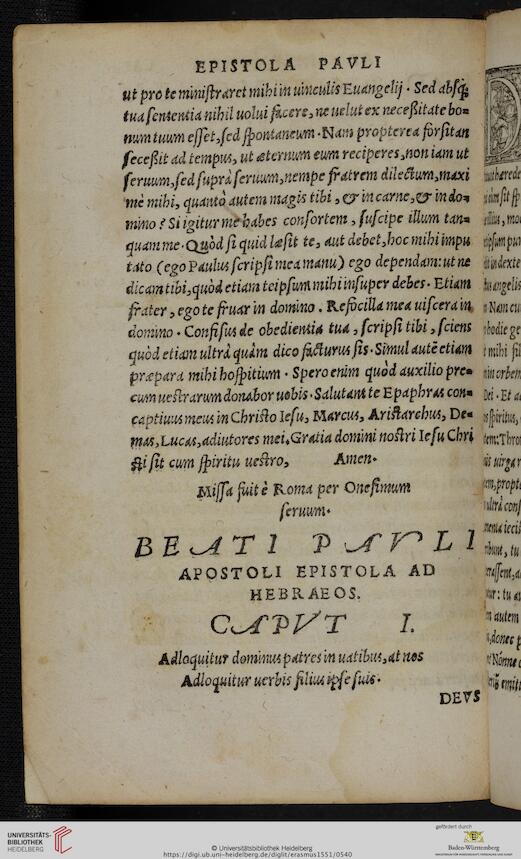 EPISTOLA PAVLI
ut pro te miniſtraret mihi in uinculis Euangelij. Sed abſq́;
tua ſententia nihil uolui facere, ne uelut ex neceßitate bo=
num tuum eſſet, ſed ſpontaneum. Nam propterea forſitan
ſeceßit ad tempus, ut æternum eum reciperes, non iam ut
ſeruum, ſed ſupra ſeruum, nempe fratrem dilectum, maxi
me mihi, quanto autem magis tibi, & in carne, & in do=
mino? Si igitur me habes conſortem, ſuſcipe illum tan=
quam me. Quòd ſi quid læſit te, aut debet, hoc mihi impu
tato (ego Paulus ſcripſi mea manu) ego dependam: ut ne
dicam tibi, quòd etiam teipſum mihi inſuper debes. Etiam
frater, ego te fruar in domino. Refocilla mea uiſcera in
domino. Confiſus de obedientia tua, ſcripſi tibi, ſciens
quòd etiam ultrà quàm dico facturus ſis. Simul autē etiam
præpara mihi hoſpitium. Spero enim quòd auxilio pre=
cum ueſtrarum donabor uobis. Salutant te Epaphras con=
captiuus meus in Chriſto Ieſu, Marcus, Ariſtarchus, De=
mas, Lucas, adiutores mei. Gratia domini noſtri Ieſu Chri
ſti ſit cum ſpiritu ueſtro, Amen.
Miſſa fuit è Roma per Oneſimum
ſeruum.
BEATI PAVLI
APOSTOLI EPISTOLA AD
HEBRAEOS.
CAPVT I.
Adloquitur dominus patres in uatibus, at nos
Adloquitur uerbis filius ipſe ſuis.
DEVS
UNIVERSITÄTS-
BIBLIOTHEK
HEIDELBERG
© Universitätsbibliothek Heidelberg
https://digi.ub.uni-heidelberg.de/diglit/erasmus1551/0540
gefördert durch
Baden-Württemberg